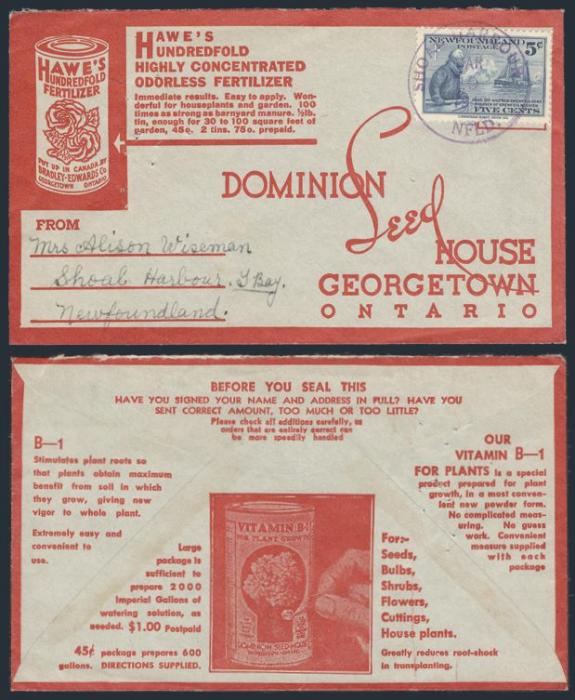 HAWE'S
HUNDREDFOLD
FERTILIZER
PUT UP IN CANADA BY
BRADLEY-EDWARDS CO
GEORGETOWN ONTARIO
HAWE'S
HUNDREDFOLD
HIGHLY CONCENTRATED
ODORLESS FERTILIZER
Immediate results. Easy to apply. Won-
derful for houseplants and garden. 100
times as strong as barnyard manure. ½lb.
tin, enough for 30 to 100 square feet of
garden, 45¢. 2 tins. 75¢. prepaid.
NEWFOUNDLAND
POSTAGE
5¢
FIVE CENTS
SHOAL HARBOUR
NFLD.
DOMINION
Seed
HOUSE
GEORGETOWN
ONTARIO
FROM
Mrs Alison Wiseman
Shoal Harbour. T Bay.
Newfoundland.
BEFORE YOU SEAL THIS
HAVE YOU SIGNED YOUR NAME AND ADDRESS IN FULL? HAVE YOU
SENT CORRECT AMOUNT, TOO MUCH OR TOO LITTLE?
Please check all additions carefully, as
orders that are entirely correct can
be more speedily handled
B—1
Stimulates plant roots so
that plants obtain maximum
benefit from soil in which
they grow, giving new
vigor to whole plant.
Extremely easy and
convenient to
use.
Large
package is
sufficient to
prepare 2000
Imperial Gallons of
watering solution, as
needed. $1.00 Postpaid
45¢ package prepares 600
gallons. DIRECTIONS SUPPLIED.
VITAMIN B-1
FOR PLANT GROWTH
DOMINION SEED HOUSE
OUR
VITAMIN B—1
FOR PLANTS is a special
product prepared for plant
growth, in a most conven-
ient new powder form.
No complicated meas-
uring. No guess
work. Convenient
measure supplied
with each
package
For:-
Seeds,
Bulbs,
Shrubs,
Flowers,
Cuttings,
House plants.
Greatly reduces root-shock
in transplanting.